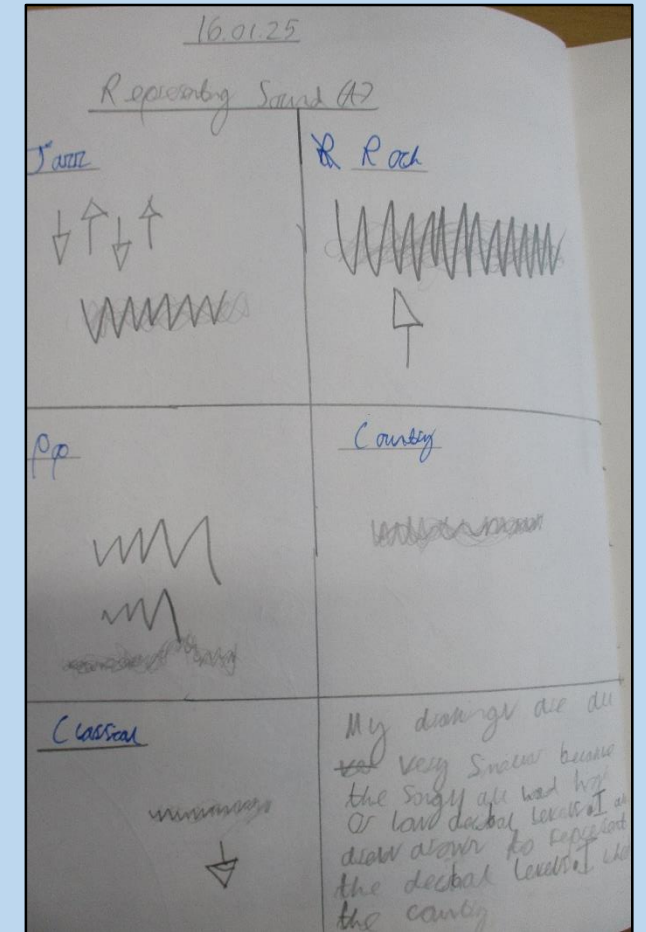 16.01.25
Representing Sound (A)
Jazz
R Rock
Pop
Country
Classical
My drawings are all
very because
the songs all had
or low decibal levels. I
draw arows to represent
the decibal levels. I
the country